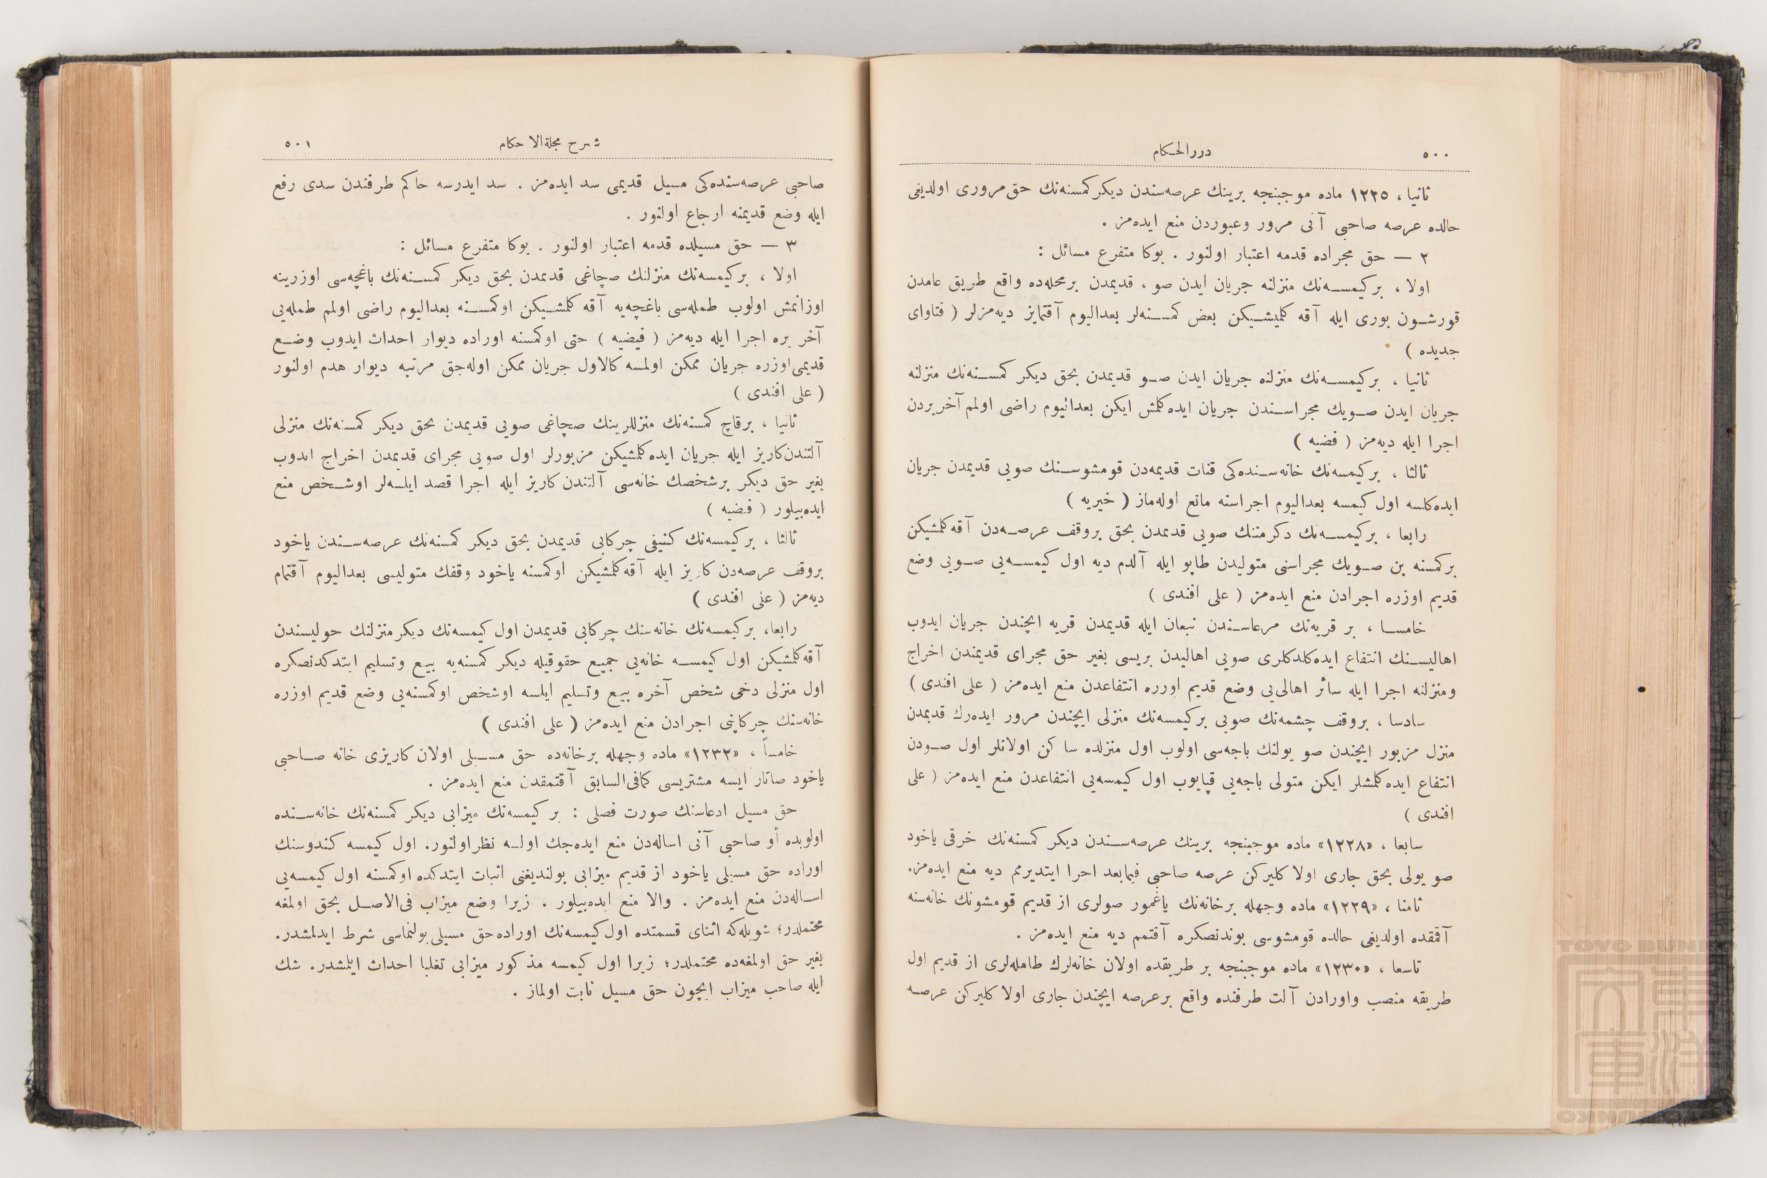 ٥٠٠
دررالحكام
ثانيا ، ١٢٢٥ ماده موجبنجه برينك عرصه‌سندن ديكر كمسنه‌نك حق مرورى اولديغى
حالده عرصه صاحبى آنى مرور وعبوردن منع ايده‌مز .
٢ — حق مجراده قدمه اعتبار اولنور . بوكا متفرع مسائل :
اولا ، بركيمسه‌نك منزلنه جريان ايدن صو ، قديمدن برمحله‌ده واقع طريق عامدن
قورشون بورى ايله آقه كليشيكن بعض كمسنه‌لر بعداليوم آقتمايز ديه‌مزلر ( فتاواى
جديده )
ثانيا ، بركيمسه‌نك منزلنه جريان ايدن صو قديمدن بحق ديكر كمسنه‌نك منزلنه
جريان ايدن صويك مجراسندن جريان ايده كلمش ايكن بعداليوم راضى اولمم آخر يردن
اجرا ايله ديه‌مز ( فضيه )
ثالثا ، بركيمسه‌نك خانه‌سنده‌كى قنات قديمه‌دن قومشوسنك صويى قديمدن جريان
ايده‌كلسه اول كيمسه بعداليوم اجراسنه مانع اوله‌ماز ( خيريه )
رابعا ، بركيمسه‌نك دكرمننك صويى قديمدن بحق بروقف عرصه‌دن آقه‌كلمشيكن
بركمسنه بن صويك مجراسنى متوليدن طاپو ايله آلدم ديه اول كيمسه‌يى صويى وضع
قديم اوزره اجرادن منع ايده‌مز ( على افندى )
خامسا ، بر قريه‌نك مرعاسندن نبعان ايله قديمدن قريه ايچندن جريان ايدوب
اهاليسنك انتفاع ايده‌كلدكلرى صويى اهاليدن بريسى بغير حق مجراى قديمندن اخراج
ومنزلنه اجرا ايله سائر اهالى‌يى وضع قديم اوزره انتفاعدن منع ايده‌مز ( على افندى )
سادسا ، بروقف چشمه‌نك صويى بركيمسه‌نك منزلى ايچندن مرور ايده‌رك قديمدن
منزل مزبور ايچندن صو يولنك باجه‌سى اولوب اول منزلده ساكن اولانلر اول صودن
انتفاع ايده‌كلمشلر ايكن متولى باجه‌يى قپايوب اول كيمسه‌يى انتفاعدن منع ايده‌مز ( على
افندى )
سابعا ، «١٢٢٨» ماده موجبنجه برينك عرصه‌سندن ديكر كمسنه‌نك خرقى ياخود
صو يولى بحق جارى اولا كليركن عرصه صاحبى فيمابعد اجرا ايتديرمم ديه منع ايده‌مز.
ثامنا ، «١٢٢٩» ماده وجهله برخانه‌نك ياغمور صولرى از قديم قومشونك خانه‌سنه
آقمقده اولديغى حالده قومشوسى بوندنصكره آقتمم ديه منع ايده‌مز .
تاسعا ، «١٢٣٠» ماده موجبنجه بر طريقده اولان خانه‌لرك طامله‌لرى از قديم اول
طريقه منصب واورادن آلت طرفنده واقع برعرصه ايچندن جارى اولا كليركن عرصه
شرح مجلةالاحكام
٥٠١
صاحبى عرصه‌سنده‌كى مسيل قديمى سد ايده‌مز . سد ايدرسه حاكم طرفندن سدى رفع
ايله وضع قديمنه ارجاع اولنور .
٣ — حق مسيلده قدمه اعتبار اولنور . بوكا متفرع مسائل :
اولا ، بركيمسه‌نك منزلنك صچاغى قديمدن بحق ديكر كمسنه‌نك باغچه‌سى اوزرينه
اوزانمش اولوب طمله‌سى باغچه‌يه آقه كلمشيكن اوكمسنه بعداليوم راضى اولمم طمله‌يى
آخر يره اجرا ايله ديه‌مز ( فيضيه ) حتى اوكمسنه اوراده ديوار احداث ايدوب وضع
قديمى اوزره جريان ممكن اولمسه كالاول جريان ممكن اوله‌جق مرتبه ديوار هدم اولنور
( على افندى )
ثانيا ، برقاچ كمسنه‌نك منزللرينك صچاغى صويى قديمدن بحق ديكر كمسنه‌نك منزلى
آلتندن كاريز ايله جريان ايده كلمشيكن مزبورلر اول صويى مجراى قديمدن اخراج ايدوب
بغير حق ديكر برشخصك خانه‌سى آلتندن كاريز ايله اجرا قصد ايلسه‌لر اوشخص منع
ايده‌بيلور ( فضيه )
ثالثا ، بركيمسه‌نك كنيفى چركابى قديمدن بحق ديكر كمسنه‌نك عرصه‌سندن ياخود
بروقف عرصه‌دن كاريز ايله آقه كلمشيكن اوكمسنه ياخود وقفك متوليسى بعداليوم آقتمام
ديه‌مز ( على افندى )
رابعا، بركيمسه‌نك خانه‌سنك چركابى قديمدن اول كيمسه‌نك ديكر منزلنك حوليسندن
آقه‌كلمشيكن اول كيمسه خانه‌يى جميع حقوقيله ديكر كمسنه‌يه بيع وتسليم ايتدكدنصكره
اول منزلى دخى شخص آخره بيع وتسليم ايلسه اوشخص اوكمسنه‌يى وضع قديم اوزره
خانه‌سنك چركابنى اجرادن منع ايده‌مز ( على افندى )
خامساً ، «١٢٣٢» ماده وجهله برخانه‌ده حق مسيلى اولان كاريزى خانه صاحبى
ياخود صاتار ايسه مشتريسى كمافى‌السابق آقتمقدن منع ايده‌مز .
حق مسيل ادعاسنك صورت فصلى : بر كيمسه‌نك ميزابى ديكر كمسنه‌نك خانه‌سنده
اولوبده او صاحبى آنى اساله‌دن منع ايده‌جك اولسه نظر اولنور. اول كيمسه كندوسنك
اوراده حق مسيلى ياخود از قديم ميزابى بولنديغنى اثبات ايتدكده اوكمسنه اول كيمسه‌يى
اساله‌دن منع ايده‌مز . والا منع ايده‌بيلور . زيرا وضع ميزاب فى‌الاصل بحق اولمغه
محتملدر؛ شويله‌كه اثناى قسمتده اول كيمسه‌نك اوراده حق مسيلى بولنماسى شرط ايدلمشدر.
بغير حق اولمغه‌ده محتملدر؛ زيرا اول كيمسه مذكور ميزابى تغلبا احداث ايلمشدر. شك
ايله صاحب ميزاب ايچون حق مسيل ثابت اولماز .
TOYO BUNKO